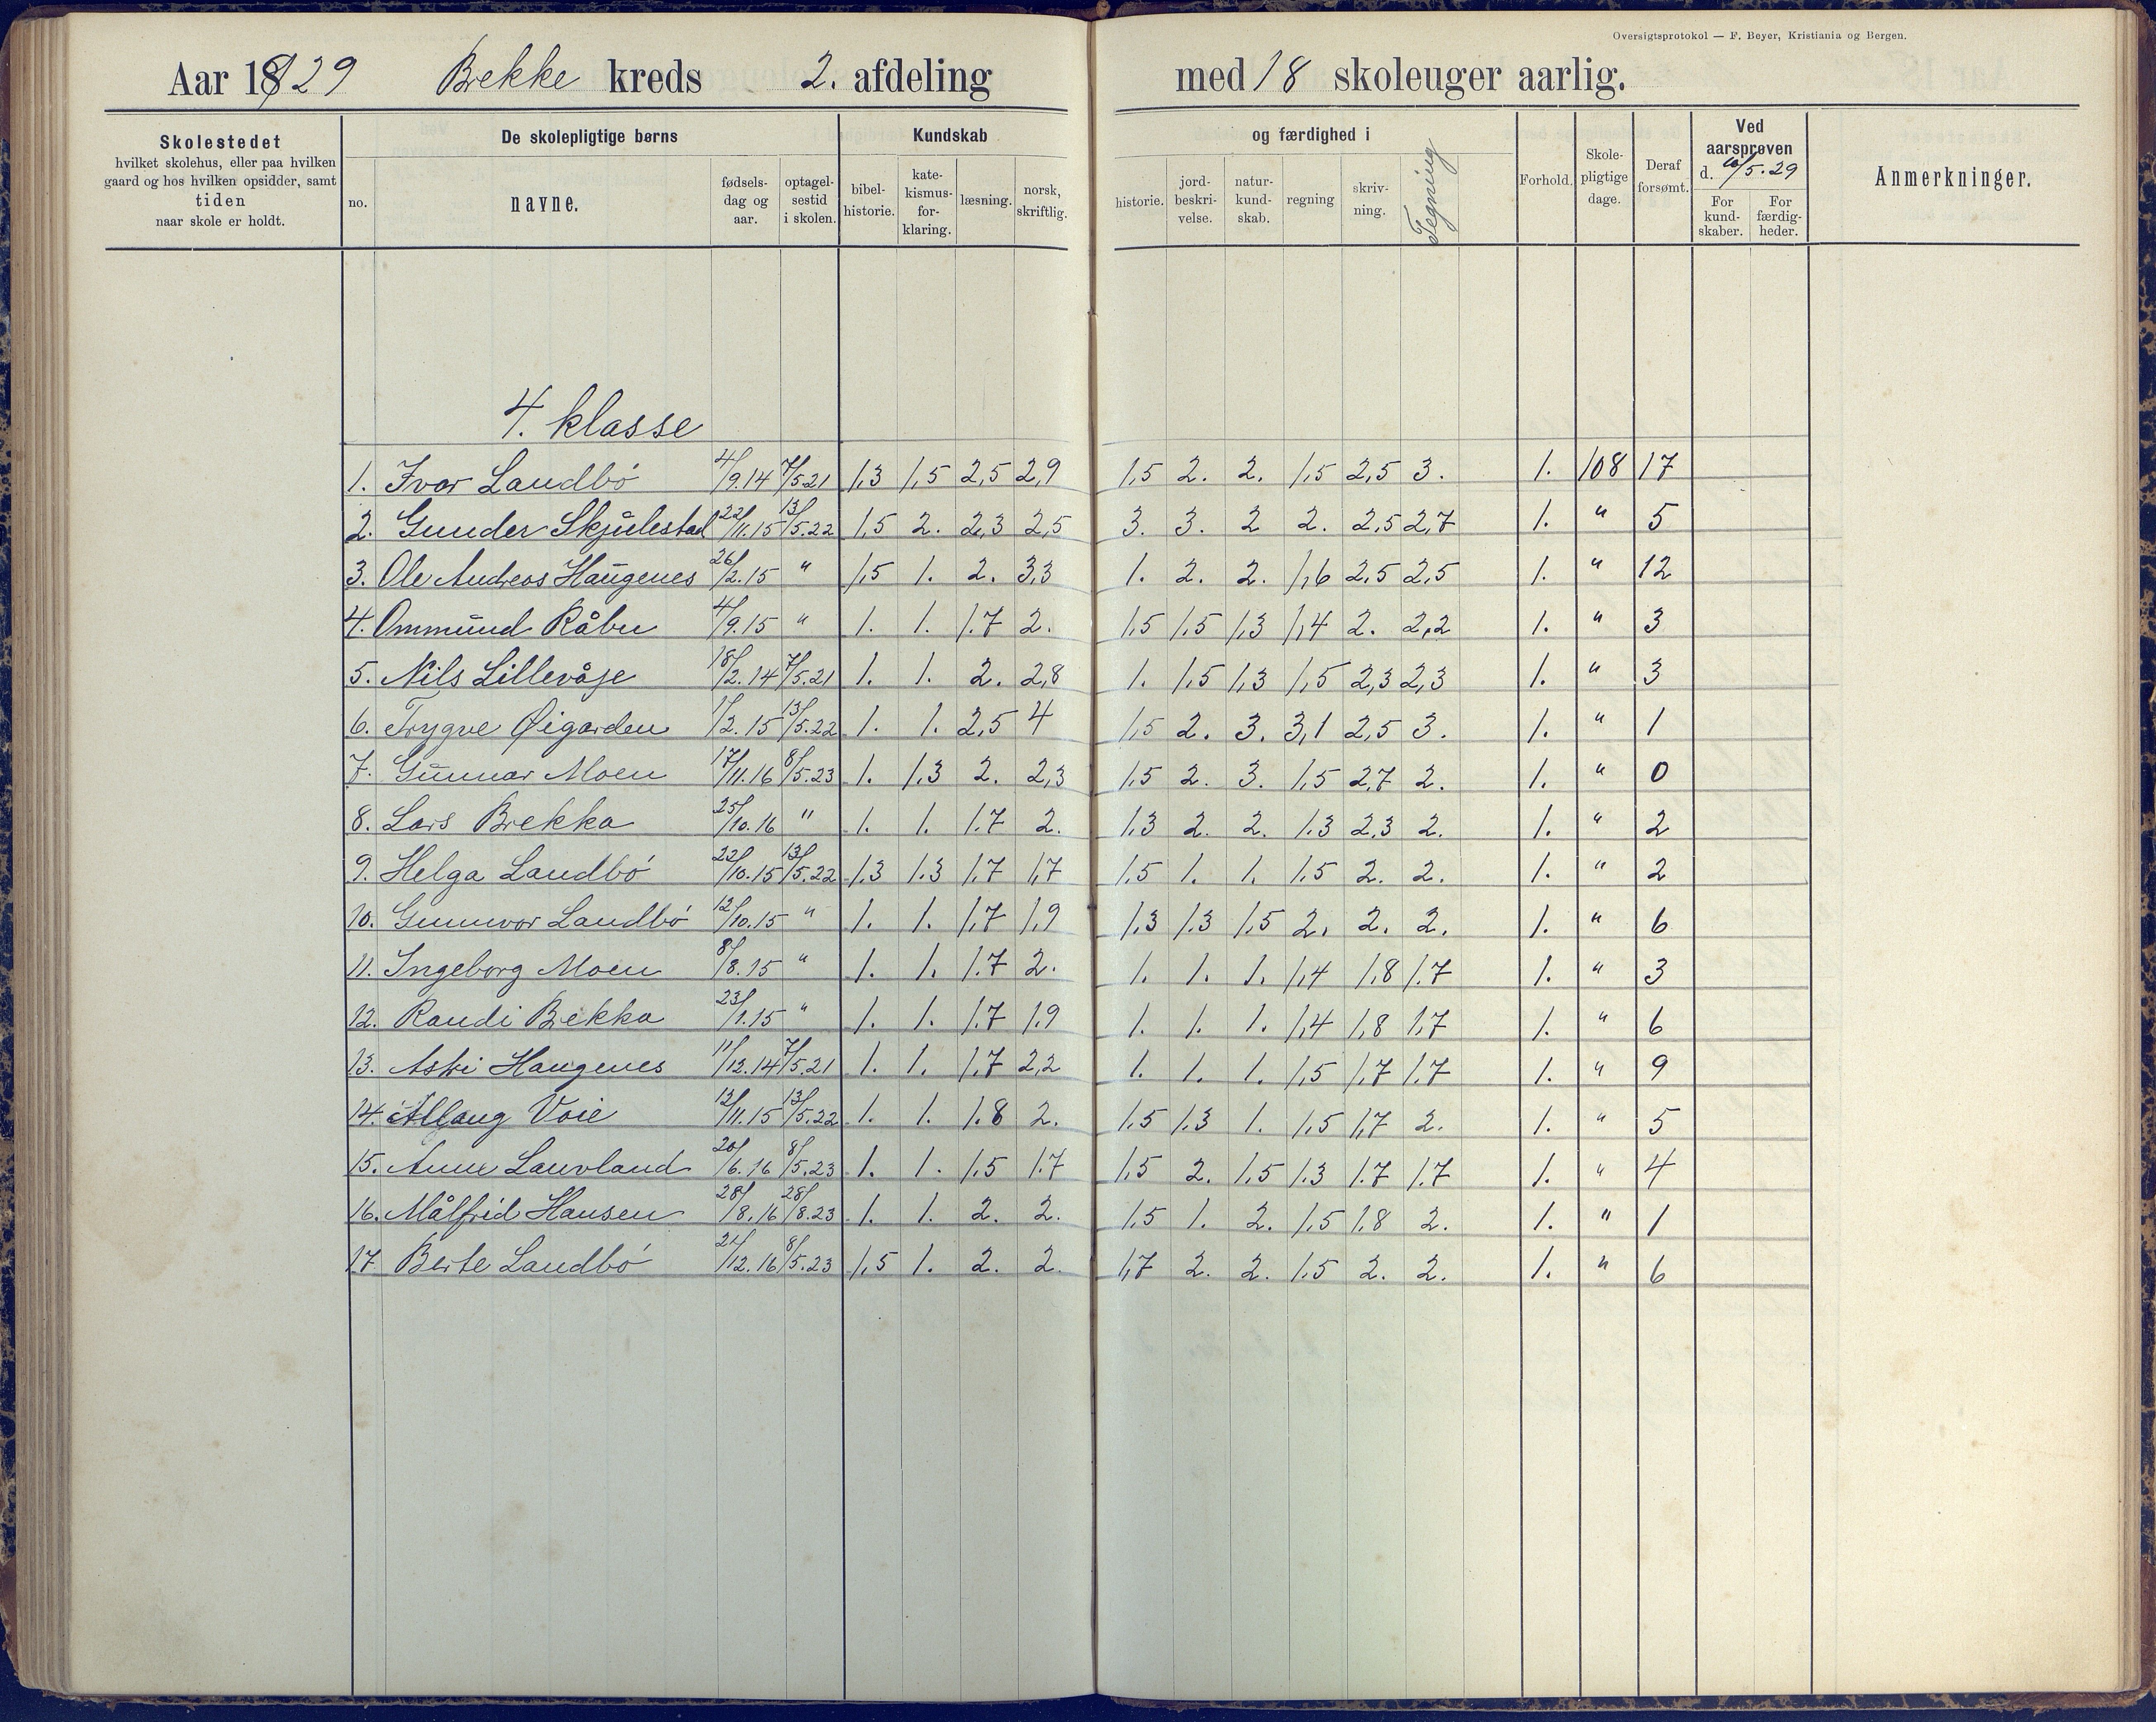 Oversigtsprotokol — F. Beyer, Kristiania og Bergen.
Aar 1929 Brekke kreds 2. afdeling med 18 skoleuger aarlig.
Skolestedet
hvilket skolehus, eller paa hvilken
gaard og hos hvilken opsidder, samt
tiden
naar skole er holdt.
De skolepligtige børns
no.
navne.
fødsels-
dag og
aar.
optagel-
sestid
i skolen.
Kundskab
bibel-
historie.
kate-
kismus-
for-
klaring.
læsning.
norsk,
skriftlig.
og færdighed i
historie.
jord-
beskri-
velse.
natur-
kund-
skab.
regning
skriv-
ning.
Tegning
Forhold.
Skole-
pligtige
dage.
Deraf
forsømt.
Ved
aarsprøven
d. 10/5.29
For
kund-
skaber.
For
færdig-
heder.
Anmerkninger.
4. klasse
1. Ivar Landbó 4/9.14 7/5.21 1,3 1,5 2,5 2,9 1,5 2. 2. 1,5 2,5 3. 1. 108 17
2. Gunder Skjulestad 22/11.15 13/5.22 1,5 2. 2,3 2,5 3. 3. 2 2. 2,5 2,7 1. " 5
3. Ole Andreas Haugenes 26/2.15 " 1,5 1. 2. 3,3 1. 2. 2. 1,6 2,5 2,5 1. " 12
4. Ommund Råbu 4/9.15 " 1. 1. 1.7 2. 1,5 1,5 1,3 1,4 2. 2,2 1. " 3
5. Nils Lillevåje 18/2.14 7/5.21 1. 1. 2. 2,8 1. 1,5 1,3 1,5 2,3 2,3 1. " 3
6. Trygve Øigarden 1/2.15 13/5.22 1. 1. 2,5 4 1,5 2. 3. 3,1 2,5 3. 1. " 1
7. Gunnar Moen 17/11.16 8/5.23 1. 1,3 2. 2,3 1,5 2. 3. 1,5 2,7 2. 1. " 0
8. Lars Brekka 25/10.16 " 1. 1. 1.7 2. 1,3 2. 2. 1.3 2,3 2. 1. " 2
9. Helga Landbó 22/10.15 13/5.22 1,3 1.3 1,7 1,7 1,5 1. 1. 1.5 2. 2. 1. " 2
10. Gunnvor Landbó 12/10.15 " 1. 1. 1,7 1,9 1,3 1.3 1,5 2. 2. 2. 1. " 6
11. Ingeborg Moen 8/8.15 " 1. 1. 1.7 2. 1. 1. 1. 1,4 1,8 1.7 1. " 3
12. Randi Brekka 23/1.15 " 1. 1. 1.7 1.9 1. 1. 1. 1,4 1,8 1,7 1. " 6
13. Astri Haugenes 11/12.14 7/5.21 1. 1. 1,7 2,2 1. 1. 1. 1,5 1,7 1.7 1. " 9
14. Allaug Voie 12/11.15 13/5.22 1. 1. 1.8 2. 1,5 1.3 1. 1,5 1,7 2. 1. " 5
15. Anne Lauvland 20/6.16 8/5.23 1. 1. 1,5 1.7 1,5 2. 1,5 1.3 1.7 1.7 1. " 4
16. Målfrid Hansen 28/8.16 28/8.23 1. 1. 2. 2. 1,5 1. 2. 1,5 1,8 2. 1. " 1
17 Berte Landbó 21/12.16 8/5.23 1,5 1. 2. 2. 1,7 2. 2. 1.5 2. 2. 1. " 6